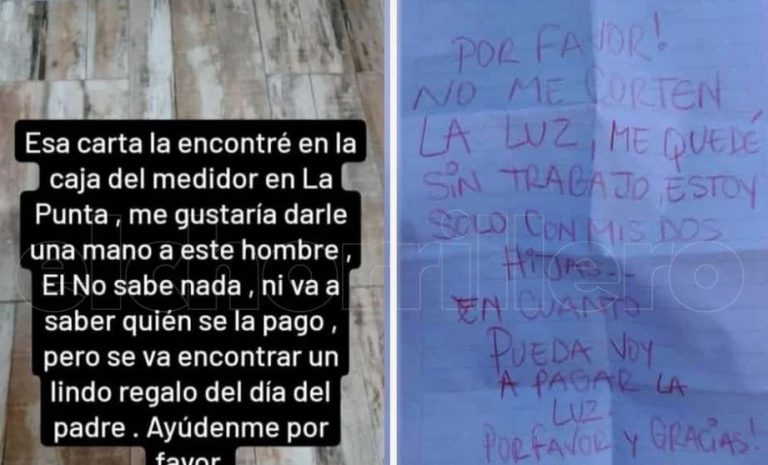 Esa carta la encontré en la
caja del medidor en La
Punta , me gustaría darle
una mano a este hombre ,
El No sabe nada , ni va a
saber quién se la pago ,
pero se va encontrar un
lindo regalo del día del
padre . Ayúdenme por
favor
POR FAVOR!
NO ME CORTEN
LA LUZ, ME QUEDÉ
SIN TRABAJO, ESTOY
SOLO CON MIS DOS
HIJAS...
EN CUANTO
PUEDA VOY
A PAGAR LA
LUZ
POR FAVOR Y GRACIAS!
elchorrillero